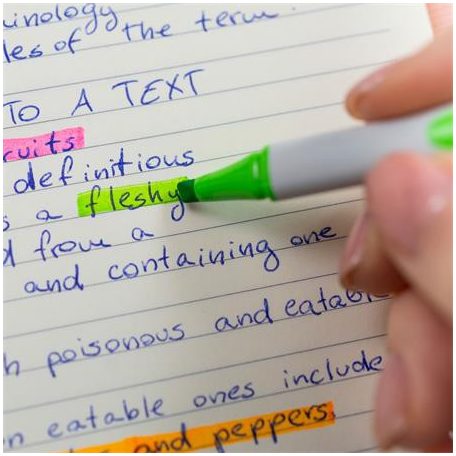 minology
les of the term
TO A TEXT
ruits
definitions
s a fleshy
d from a
and containing one
h poisonous and eatable
n eatable ones include
and peppers.